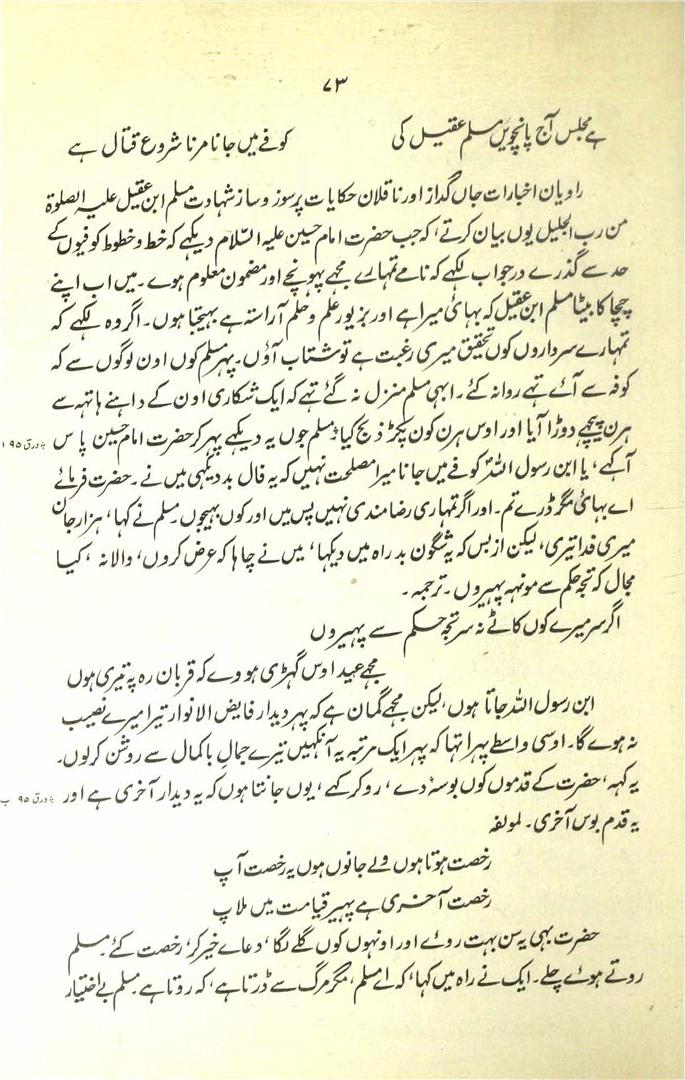 ۷۳
ہے مجلس آج پانچویں مسلم عقیل کی کوفے میں جانا مرنا شروع قتال ہے
راویان اخبارات جاں گداز اور ناقلان حکایات پرسوز و ساز شہادت مسلم ابن عقیل علیہ الصلوٰۃ
من رب الجلیل یوں بیان کرتے، کہ جب حضرت امام حسین علیہ السّلام دیکہے کہ خط و خطوط کوفیوں کے
حد سے گذرے در جواب لکہے کہ نامے تمہارے مجہے پہونچے اور مضمون معلوم ہوے۔ میں اب اپنے
چچا کا بیٹا مسلم ابن عقیل کہ بہائ میرا ہے اور بزیور علم و حلم آراستہ ہے بہیجتا ہوں۔ اگر وہ لکہے کہ
تمہارے سرداروں کوں تحقیق میری رغبت ہے تو شتاب آؤں۔ پہر مسلم کوں اون لوگوں سے کہ
کوفہ سے آئے تہے روانہ کئے۔ ابہی مسلم منزل نہ گئے تہے کہ ایک شکاری اون کے داہنے ہاتہہ سے
ہرن پیچہے دوڑا آیا اور اوس ہرن کوں پکڑ ذبح کیا؛ مسلم جوں یہ دیکہے پہر کر حضرت امام حسین پاس ؞ ورق ۹۵ ا
آ کہے، یا ابن رسول اللہؐ کوفے میں جانا میرا مصلحت نہیں کہ یہ فال بد دیکہی میں نے۔ حضرت فرمائے
اے بہائ مگر ڈرے تم۔ اور اگر تمہاری رضامندی نہیں پس میں اور کوں بہیجوں۔ مسلم نے کہا، ہزار جان
میری فدا تیری، لیکن از بس کہ یہ شگون بد راہ میں دیکہا، میں نے چاہا کہ عرض کروں، والا نہ، کیا
مجال کہ تجہ حکم سے مونہہ پہیروں۔ ترجمہ۔
اگر سر میرے کوں کاٹے نہ سر تجہ حکم سے پہیروں
مجہے عید اوس گہڑی ہووے کہ قربان رہ پہ تیری ہوں
ابن رسول اللہ جاتا ہوں، لیکن مجہے گمان ہے کہ پہر دیدار فایض الانوار تیرا میرے نصیب
نہ ہوے گا۔ اوسی واسطے پہرا تہا کہ پہر ایک مرتبہ یہ آنکہیں تیرے جمالِ باکمال سے روشن کر لوں۔
یہ کہہ، حضرت کے قدموں کوں بوسہ دے، رو کر کہے، یوں جانتا ہوں کہ یہ دیدار آخری ہے اور ؞ ورق ۹۵ ب
یہ قدم بوس آخری۔ لمولفہ
رخصت ہوتا ہوں ولے جانوں ہوں یہ رخصت آپ
رخصت آخری ہے پہیر قیامت میں ملاپ
حضرت بہی یہ سن بہت روے اور اونہوں کوں گلے لگا، دعاے خیر کر، رخصت کئے۔ مسلم
روتے ہوئے چلے۔ ایک نے راہ میں کہا، کہ اے مسلم، مگر مرگ سے ڈرتا ہے، کہ روتا ہے۔ مسلم بے اختیار